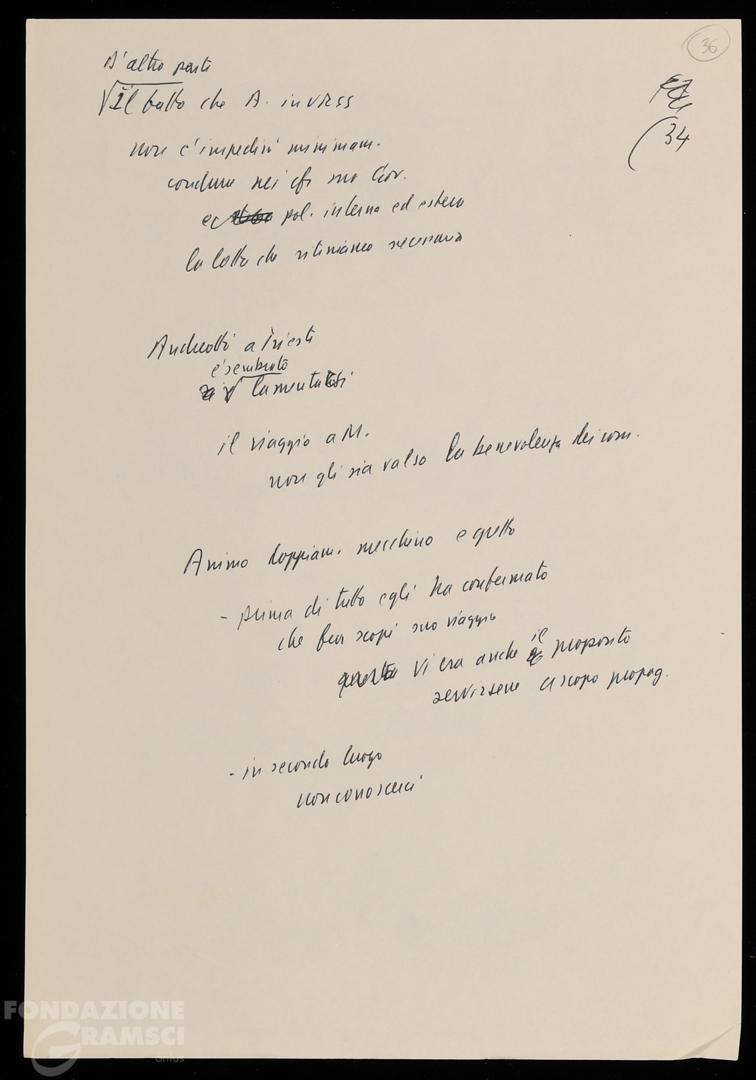 36
D'altra parte
Il fatto che A. in URSS
34
non c'impedirà minimam.
condurre nei cfr suo Gov.
e pol. interna ed estera
la lotta che riteniamo necessaria
Andreotti a Trieste
è sembrato
lamentarsi
il viaggio a M.
non gli sia valso la benevolenza dei com.
Animo doppiam. meschino e gretto
- prima di tutto egli ha confermato
che fra scopi suo viaggio
vi era anche il proposito
servirsene a scopo propag.
- in secondo luogo
non conoscerci
FONDAZIONE
GRAMSCI
onlus